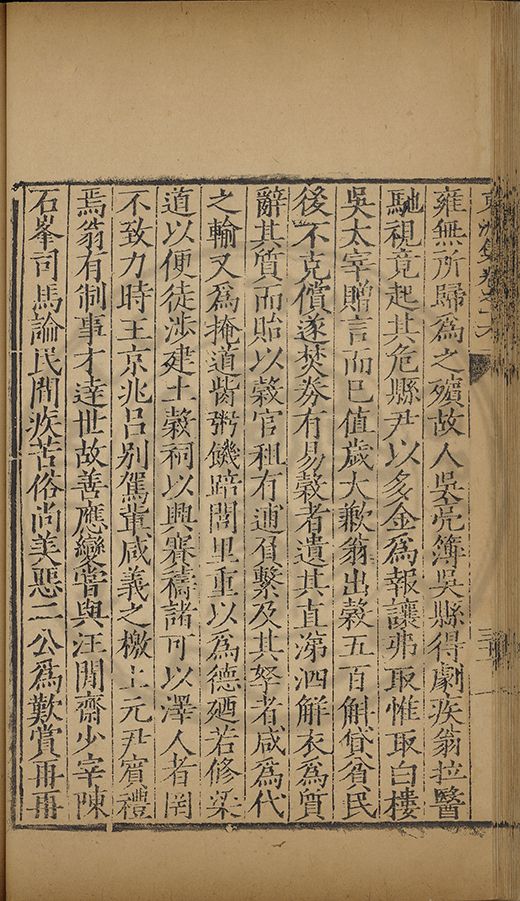 雍無所歸為之殯故人吳亮簿吳縣得劇疾翁拉醫
馳視竟起其危縣尹以多金為報讓弗取惟取白樓
吳太宰贈言而巳值歲大歉翁出穀五百斛貸貧民
後不克償遂焚券有易穀者遺其直涕泗解衣為質
辭其質而貽以穀官租有逋負繫及其孥者咸為代
之輸又為掩道胔粥饑踣閭里重以為德廼若修梁
道以便徒涉建土穀祠以興賽禱諸可以澤人者罔
不致力時王京兆呂别駕軰咸義之檄上元尹賓禮
焉翁有制事才逹世故善應變嘗與汪閒齋少宰陳
石峯司馬論民間疾苦俗尚美惡二公為歎賞冊冊